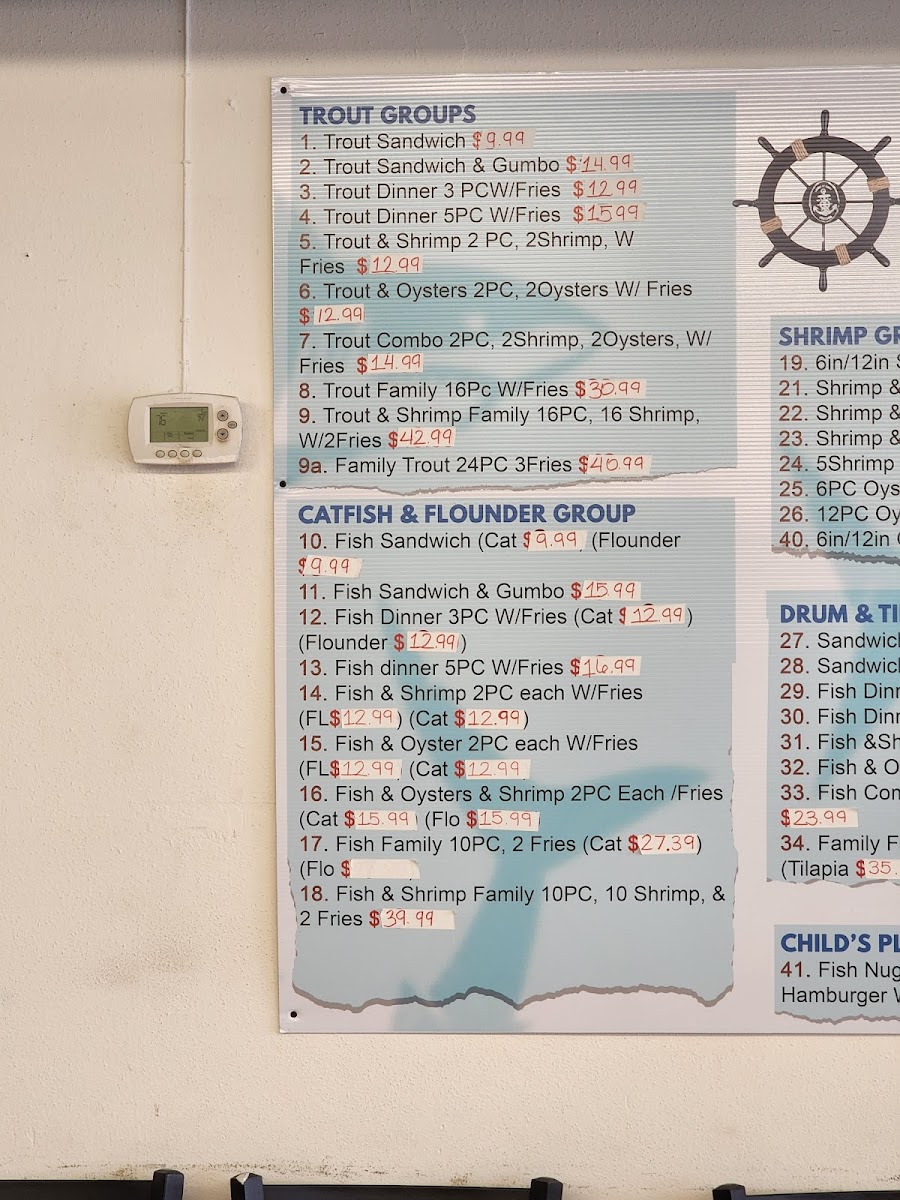 TROUT GROUPS
1. Trout Sandwich $9.99
2. Trout Sandwich & Gumbo $14.99
3. Trout Dinner 3 PCW/Fries $12.99
4. Trout Dinner 5PC W/Fries $15.99
5. Trout & Shrimp 2 PC, 2Shrimp, W
Fries $12.99
6. Trout & Oysters 2PC, 2Oysters W/ Fries
$12.99
7. Trout Combo 2PC, 2Shrimp, 2Oysters, W/
Fries $14.99
8. Trout Family 16Pc W/Fries $30.99
9. Trout & Shrimp Family 16PC, 16 Shrimp,
W/2Fries $42.99
9a. Family Trout 24PC 3Fries $40.99
CATFISH & FLOUNDER GROUP
10. Fish Sandwich (Cat $9.99 (Flounder
$9.99
11. Fish Sandwich & Gumbo $15.99
12. Fish Dinner 3PC W/Fries (Cat $12.99)
(Flounder $12.99)
13. Fish dinner 5PC W/Fries $16.99
14. Fish & Shrimp 2PC each W/Fries
(FL$12.99) (Cat $12.99)
15. Fish & Oyster 2PC each W/Fries
(FL$12.99) (Cat $12.99
16. Fish & Oysters & Shrimp 2PC Each /Fries
(Cat $15.99) (Flo $15.99)
17. Fish Family 10PC, 2 Fries (Cat $27.39)
(Flo $
18. Fish & Shrimp Family 10PC, 10 Shrimp, &
2 Fries $39.99
SHRIMP GR
19. 6in/12in S
21. Shrimp &
22. Shrimp &
23. Shrimp &
24. 5Shrimp
25. 6PC Oys
26. 12PC Oy
40. 6in/12in
DRUM & TI
27. Sandwich
28. Sandwich
29. Fish Dinn
30. Fish Dinn
31. Fish &Sh
32. Fish & O
33. Fish Con
$23.99
34. Family F
(Tilapia $35.
CHILD'S PL
41. Fish Nug
Hamburger W